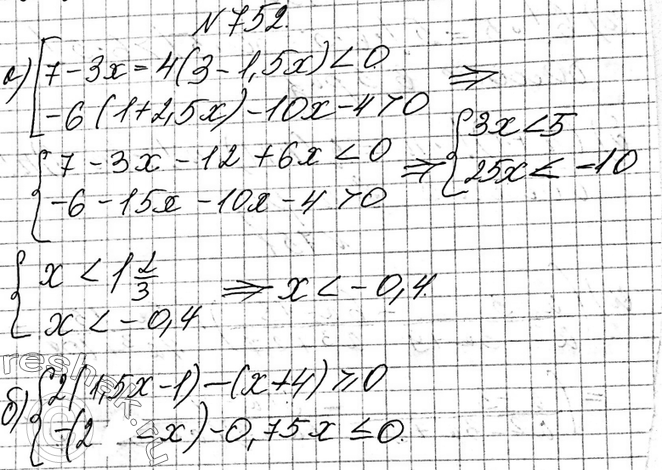 №752.
а) [7-3x=4(3-1,5x)<0 ⇒
[-6(1+2,5x)-10x-4>0
{7-3x-12+6x<0 ⇒ {3x<5
{-6-15x-10x-4>0 {25x<-10
{x<1 2/3 ⇒ x<-0,4.
{x<-0,4
б) {2(1,5x-1)-(x+4)≥0
{-(2 -x)-0,75x≤0.
reshak.ru